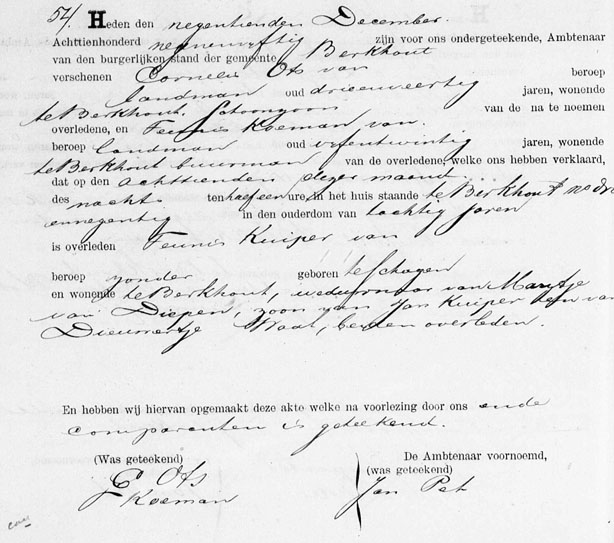 54. Heden den negentienden December
Achttienhonderd negenenvyftig zijn voor ons ondergeteekende, Ambtenaar
van den burgerlijken stand der gemeente Berkhout
verschenen Cornelis Ots van beroep
landman oud drieenveertig jaren, wonende
te Berkhout, schoonzoon van de na te noemen
overledene, en Teunis Koeman van
beroep landman oud vyfentwintig jaren, wonende
te Berkhout buurman van de overledene, welke ons hebben verklaard,
dat op den achttienden dezer maand
des nachts ten half een ure, in het huis staande te Berkhout no drie
ennegentig in den ouderdom van tachtig jaren
is overleden Teunis Kuiper van
beroep zonder geboren te Schagen
en wonende te Berkhout, weduwnaar van Maartje
van Diepen, zoon van Jan Kuiper en van
Dieuwertje Waal, beiden overleden.
En hebben wij hiervan opgemaakt deze akte welke na voorlezing door ons ende
comparanten is geteekend.
(Was geteekend) De Ambtenaar voornoemd,
(was geteekend)
C Ots
Koeman Jan Pet